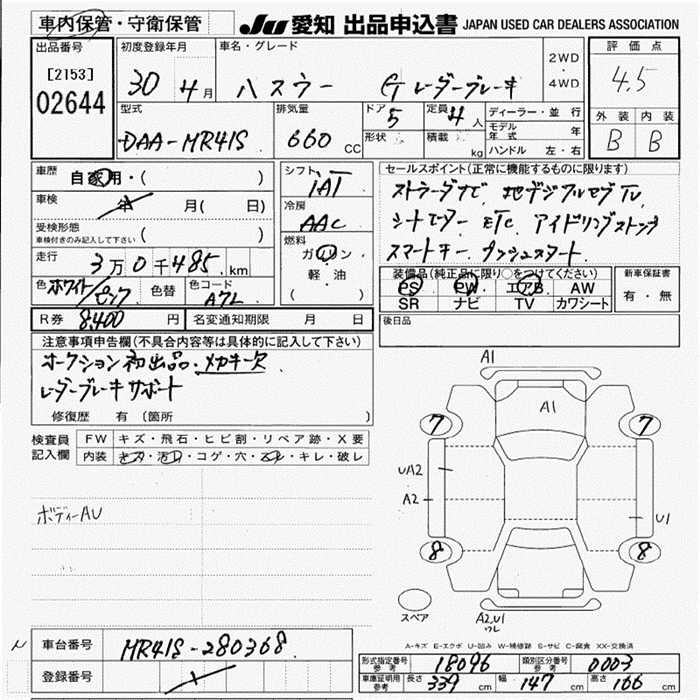 車内保管・守衛保管
JU 愛知 出品申込書 JAPAN USED CAR DEALERS ASSOCIATION
出品番号
[2153]
02644
初度登録年月
30 4月
車名・グレード
ハスラー G レーダーブレーキ
2WD・4WD
評価点
4.5
外装 内装
B B
型式
DAA-MR41S
排気量
660 CC
ドア 5
形状
定員 4人
積載 kg
ディーラー・並行
モデル年式 年
ハンドル 左・右
車歴 自家用・( )
車検 年 月( 日)
受検形態
車検付きのみ記入して下さい ( )
走行 3万0千485km
色 ホワイト/ピンク 色替 色コード A7L
R券 8,400円 名変通知期限 月 日
シフト
IAT
冷房
AAC
燃料
ガソリン
軽・油
( )
セールスポイント(正常に機能するものに限ります)
ストラーダナビ、地デジフルセグTV、
シートヒーター ETC、アイドリングストップ
スマートキー、プッシュスタート、
装備品(純正品に限り○をつけてください)
PS PW エアB AW
SR ナビ TV カワシート
新車保証書
有・無
後日品
注意事項申告欄(不具合内容等は具体的に記入して下さい)
オークション初出品・メカキーズ
レーダーブレーキサポート
修復歴 有 〔箇所 〕
検査員記入欄
FW キズ・飛石・ヒビ割・リペア跡・X要
内装 キズ・汚れ・コゲ・穴・スレ・キレ・破レ
ボディーAU
A1
A1
7 7
UA2
A2
U1
8 8
スペア
A2,U1
ワレ
A-キズ E-エクボ U-凹み W-補修跡 S-サビ C-腐食 XX-交換済
車台番号 MR41S-280368
登録番号
形式指定番号 参考 18096
類別区分番号 参考 0003
車庫証明用 参考 長さ 339 cm 幅 147 cm 高さ 166 cm